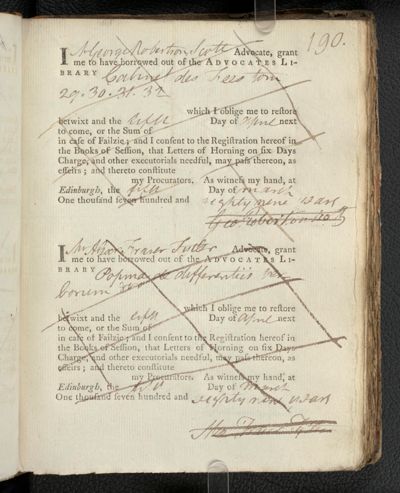 190.
I Mr George Robertson Scott Advocate, grant
me to have borrowed out of the ADVOCATES LI-
BRARY Cabinet des Fees tom
29. 30. 31. 32
which I oblige me to restore
betwixt and the first Day of April next
to come, or the Sum of
in case of Failzie; and I consent to the Registration hereof in
the Books of Session, that Letters of Horning on six Days
Charge, and other executorials needful, may pass thereon, as
effeirs; and thereto constitute
my Procurators. As witness my hand, at
Edinburgh, the first Day of March
One thousand seven hundred and eighty nine years
Geo Robertson Scott
I Mr Alexr Fraser Tytler Advocate, grant
me to have borrowed out of the ADVOCATES LI-
BRARY Popma de differentiis ver
borum
which I oblige me to restore
betwixt and the first Day of April next
to come, or the Sum of
in case of Failzie; and I consent to the Registration hereof in
the Books of Session, that Letters of Horning on six Days
Charge, and other executorials needful, may pass thereon, as
effeirs; and thereto constitute
my Procurators. As witness my hand, at
Edinburgh, the first Day of March
One thousand seven hundred and eighty nine years
Alex Fraser Tytler